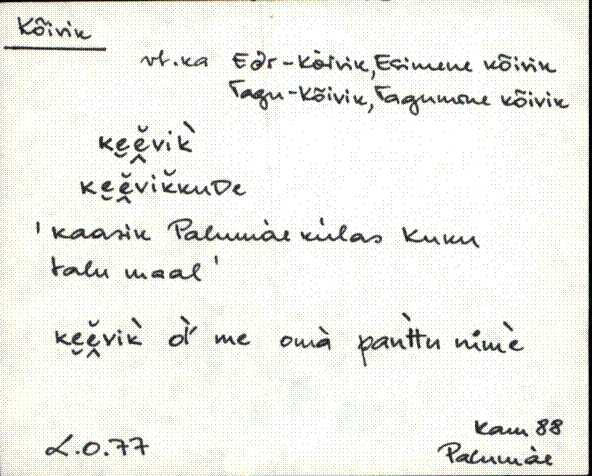 Kõivik
vt. ka Edr-Kõivik, Esimene kõivik
Tagu-Kõivik, Tagumine kõivik
kе̮ӗ̮vik̀
kе̮ӗ̮vik̆kuDe
'kaasik Palumäe külas Kuku
talu maal'
kе̮ӗ̮vik̀ oĺ me omà pańttu nimè
L.O.77 Kam 88
Palumäe